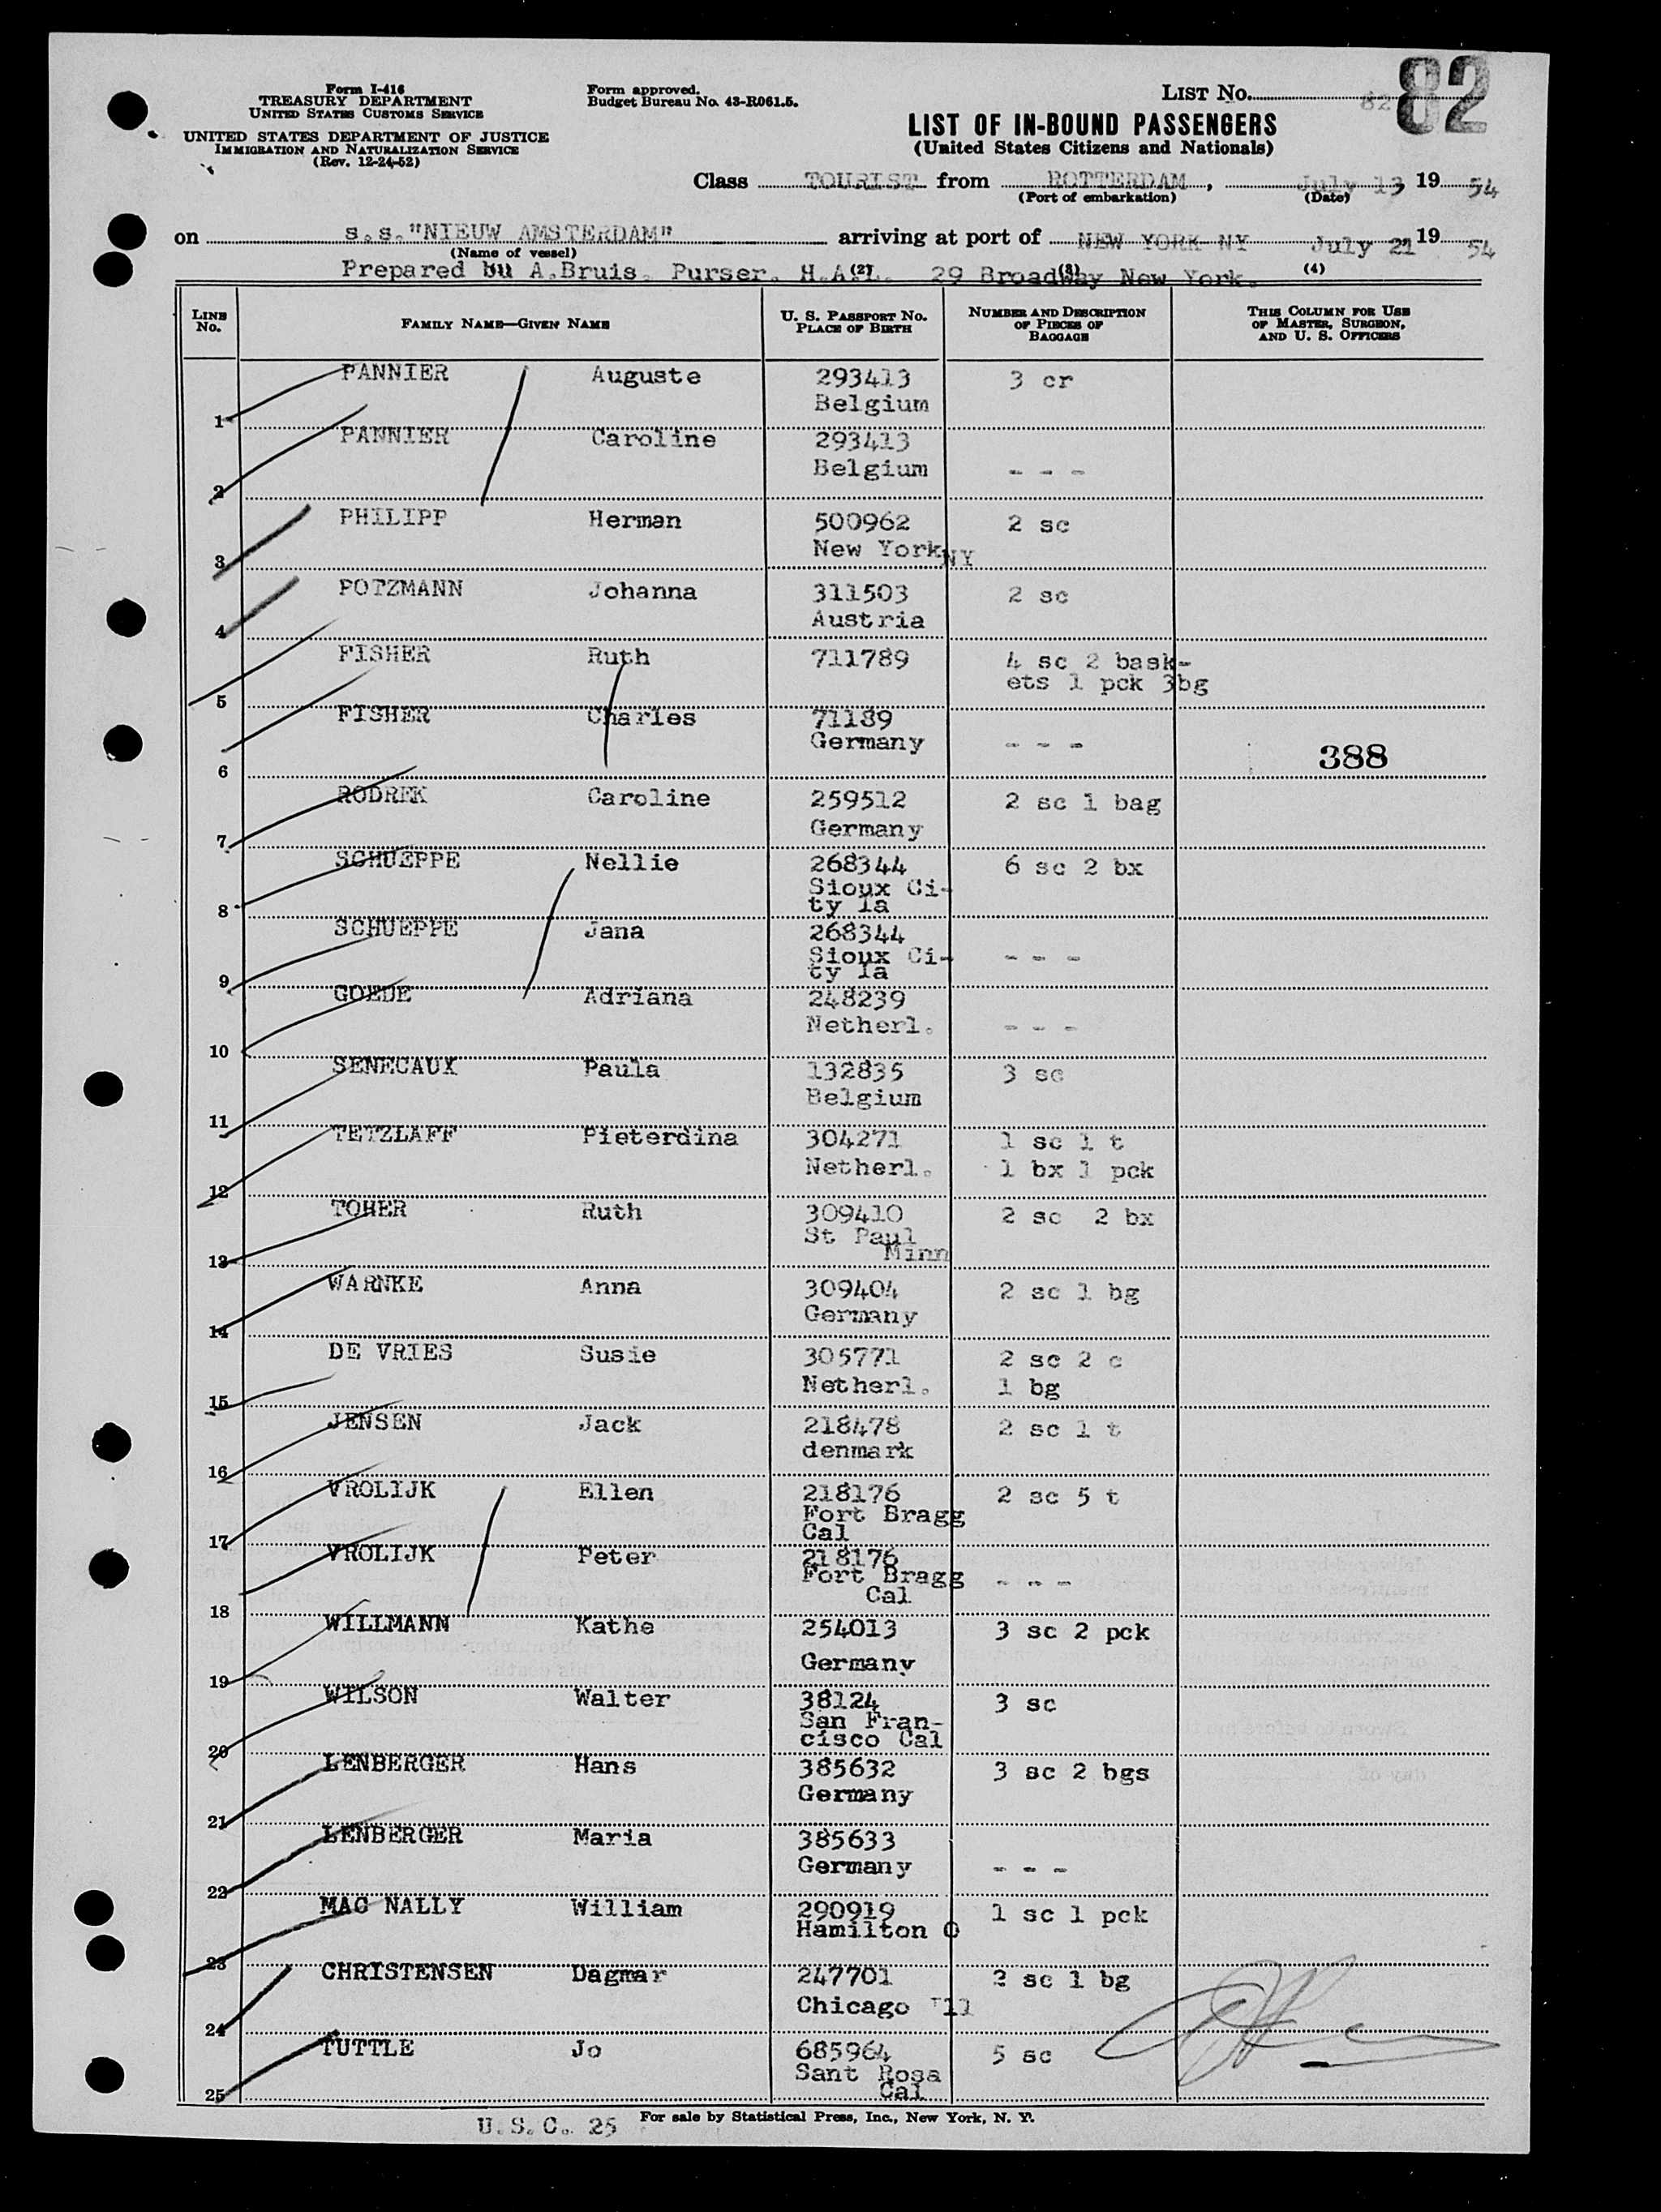 Form I-416
TREASURY DEPARTMENT
UNITED STATES CUSTOMS SERVICE
UNITED STATES DEPARTMENT OF JUSTICE
IMMIGRATION AND NATURALIZATION SERVICE
(Rev. 12-24-52)
Form approved.
Budget Bureau No. 43-R061.5.
LIST No. 82
82
LIST OF IN-BOUND PASSENGERS
(United States Citizens and Nationals)
Class TOURIST from ROTTERDAM, July 13, 19 54
(Port of embarkation) (Date)
on s.s."NIEUW AMSTERDAM" arriving at port of NEW YORK NY July 21 19 54
(Name of vessel)
Prepared by A.Bruis. Purser. H.A.L. 29 Broadway New York.
(2) (3) (4)
LINE No. FAMILY NAME—GIVEN NAME U. S. PASSPORT NO. PLACE OF BIRTH NUMBER AND DESCRIPTION OF PIECES OF BAGGAGE THIS COLUMN FOR USE OF MASTER, SURGEON, AND U. S. OFFICERS
PANNIER Auguste 293413 3 cr
Belgium
1
PANNIER Caroline 293413
Belgium - - -
2
PHILIPP Herman 500962 2 sc
New York NY
3
POTZMANN Johanna 311503 2 sc
Austria
4
FISHER Ruth 711789 4 sc 2 bask-
ets 1 pck 3bg
5
FISHER Charles 71189
Germany - - -
388
6
RODREK Caroline 259512 2 sc 1 bag
Germany
7
SCHUEPPE Nellie 268344 6 sc 2 bx
Sioux Ci-
ty Ia
8
SCHUEPPE Jana 268344
Sioux Ci- - - -
ty Ia
9
GOEDE Adriana 248239
Netherl. - - -
10
SENECAUX Paula 132835 3 sc
Belgium
11
TETZLAFF Pieterdina 304271 1 sc 1 t
Netherl. 1 bx 1 pck
12
TOHER Ruth 309410 2 sc 2 bx
St Paul
Minn
13
WARNKE Anna 309404 2 sc 1 bg
Germany
14
DE VRIES Susie 305771 2 sc 2 c
Netherl. 1 bg
15
JENSEN Jack 218478 2 sc 1 t
denmark
16
VROLIJK Ellen 218176 2 sc 5 t
Fort Bragg
Cal
17
VROLIJK Peter 218176
Fort Bragg - - -
Cal
18
WILLMANN Kathe 254013 3 sc 2 pck
Germany
19
WILSON Walter 38124 3 sc
San Fran-
cisco Cal
20
LENBERGER Hans 385632 3 sc 2 bgs
Germany
21
LENBERGER Maria 385633
Germany - - -
22
MAC NALLY William 290919 1 sc 1 pck
Hamilton O
23
CHRISTENSEN Dagmar 247701 2 sc 1 bg
Chicago Ill
24
TUTTLE Jo 685964 5 sc
Sant Rosa
Cal
25
U.S.C. 25 For sale by Statistical Press, Inc., New York, N. Y.